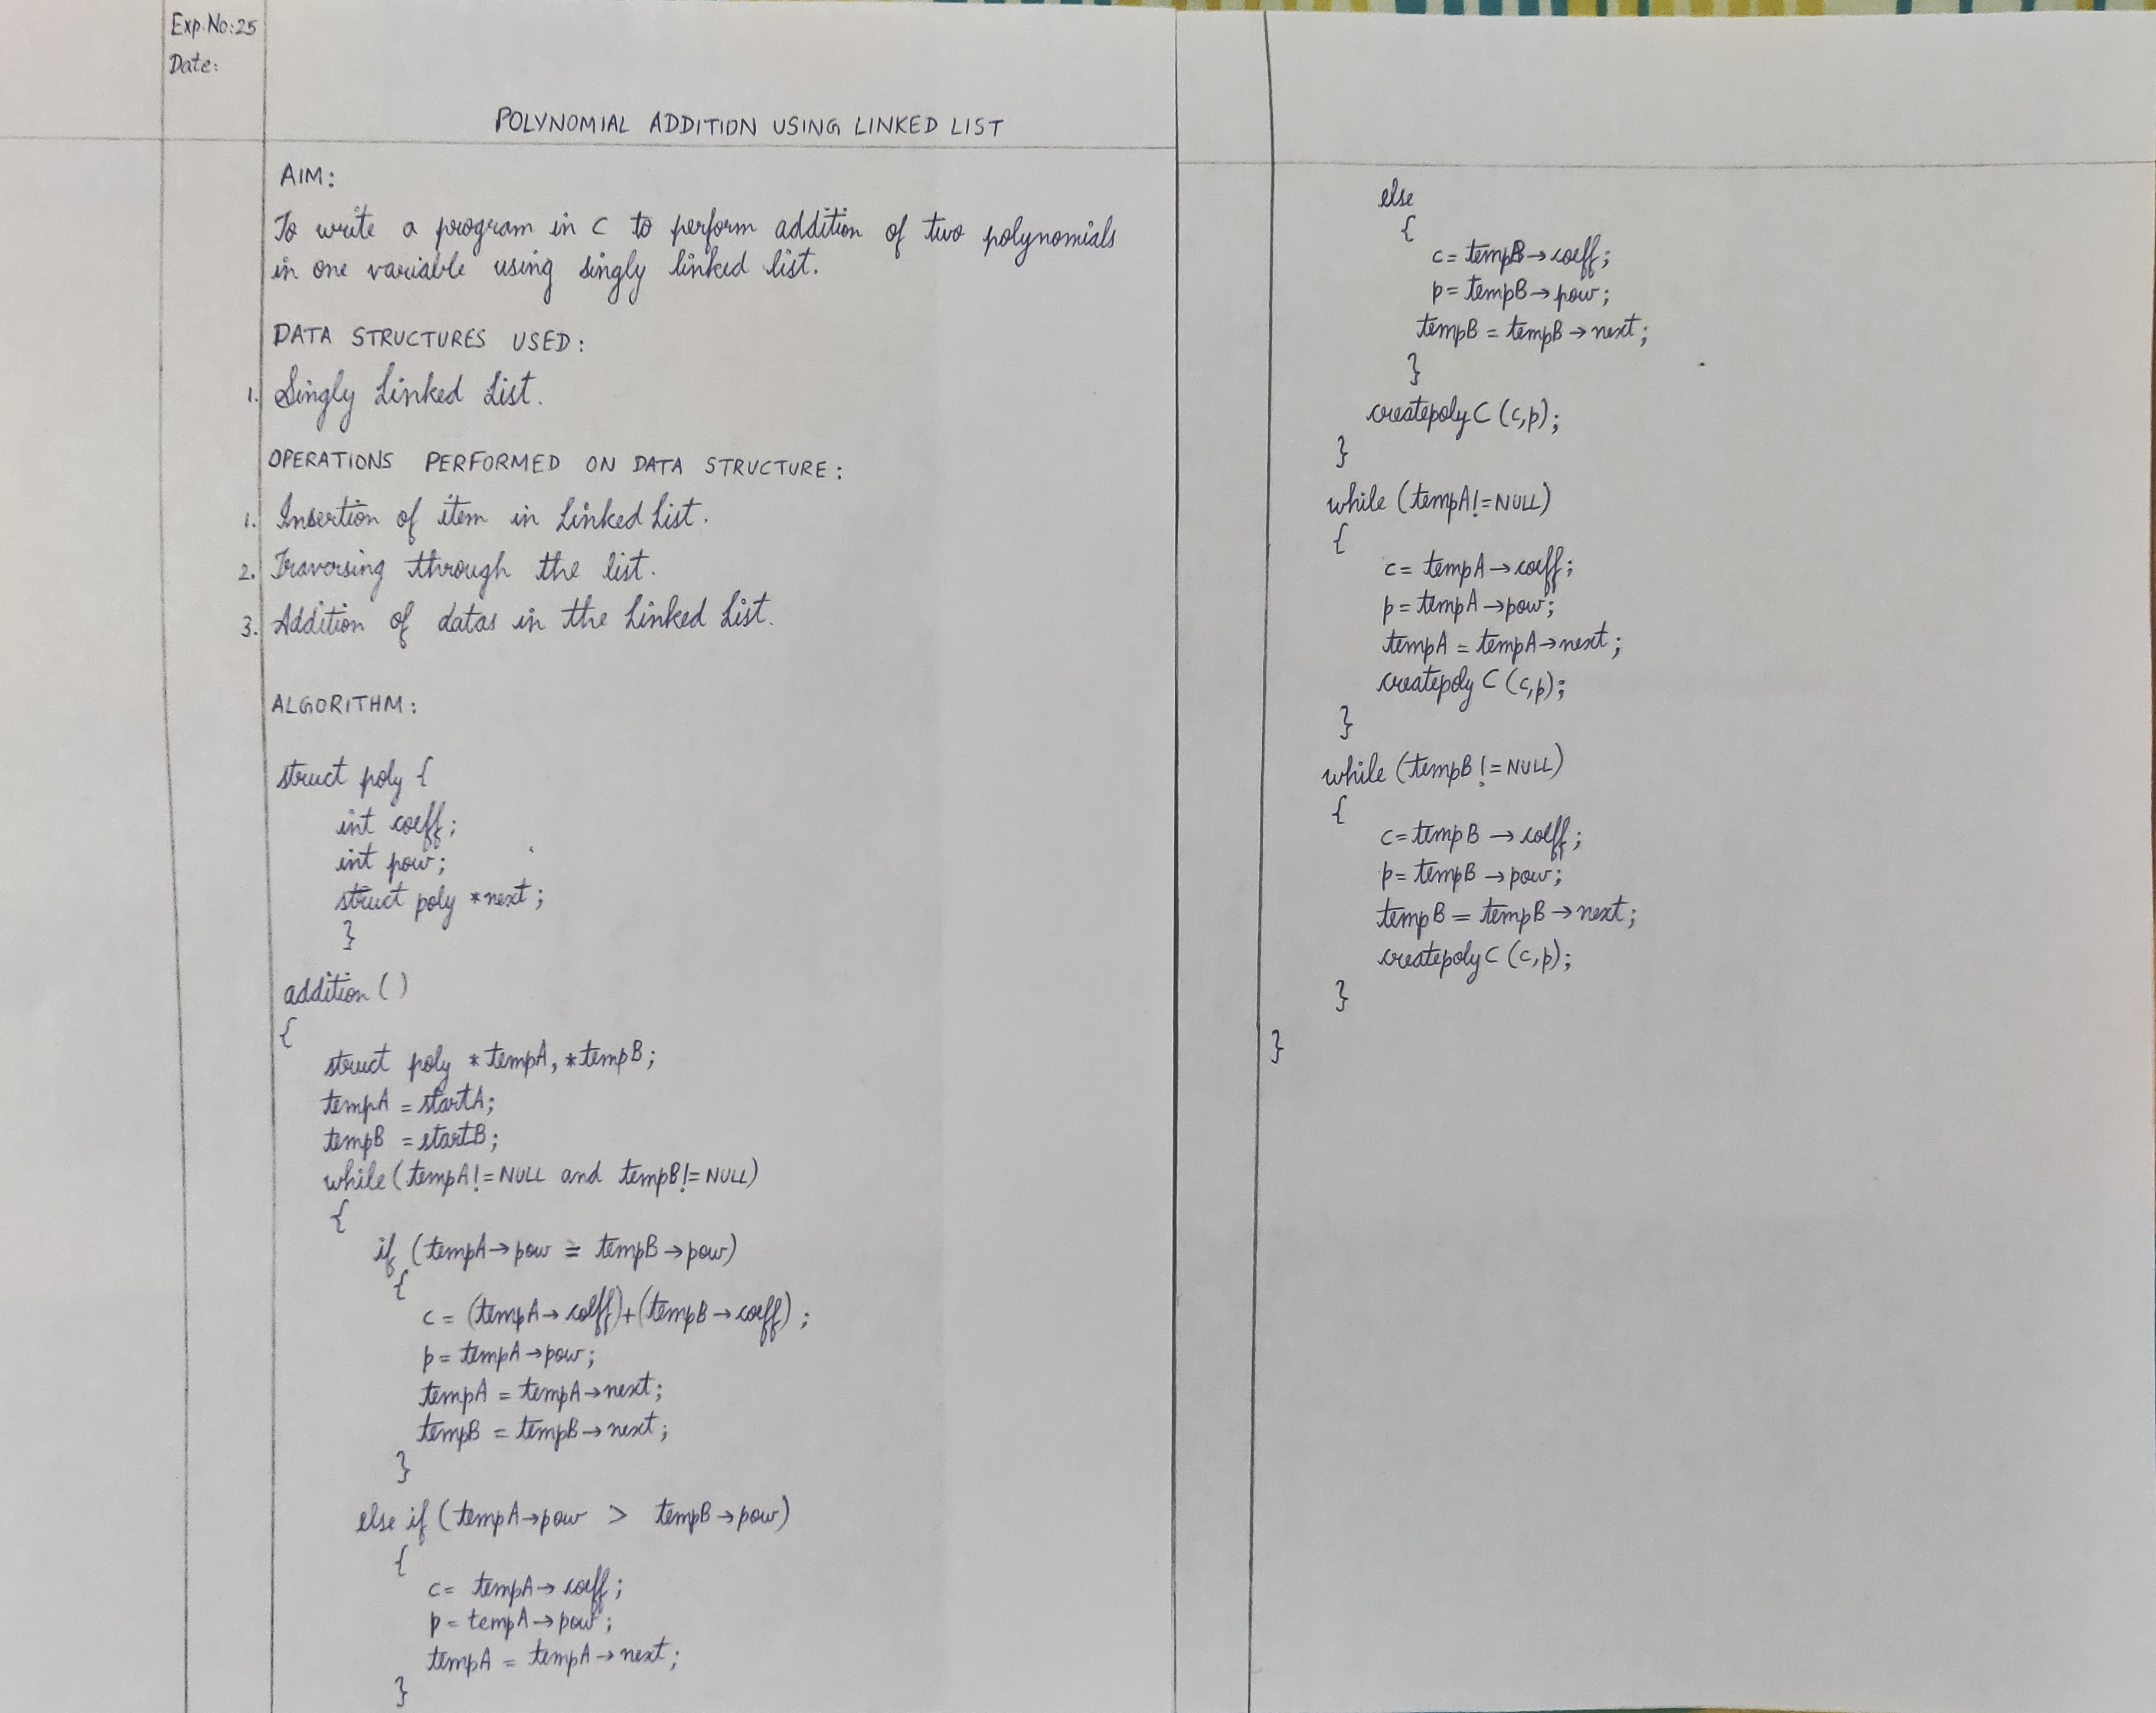 Exp.No:25
Date:
POLYNOMIAL ADDITION USING LINKED LIST
AIM:
To write a program in C to perform addition of two polynomials
in one variable using singly linked list.
DATA STRUCTURES USED:
1. Singly Linked List.
OPERATIONS PERFORMED ON DATA STRUCTURE:
1. Insertion of item in Linked List.
2. Traversing through the list.
3. Addition of datas in the Linked List.
ALGORITHM:
struct poly {
int coeff;
int pow;
struct poly *next;
}
addition ( )
{
struct poly *tempA, *tempB;
tempA = startA;
tempB = startB;
while (tempA!=NULL and tempB!=NULL)
{
if (tempA→pow = tempB→pow)
{
c = (tempA→coeff)+(tempB→coeff) ;
p = tempA→pow;
tempA = tempA→next;
tempB = tempB→next;
}
else if (tempA→pow > tempB→pow)
{
c = tempA→coeff;
p = tempA→pow;
tempA = tempA→next;
}
else
{
c = tempB→coeff;
p = tempB→pow;
tempB = tempB→next;
}
createpolyC (c,p);
}
while (tempA!=NULL)
{
c = tempA→coeff;
p = tempA→pow;
tempA = tempA→next;
createpolyC (c,p);
}
while (tempB!=NULL)
{
c = tempB→coeff;
p = tempB→pow;
tempB = tempB→next;
createpolyC (c,p);
}
}